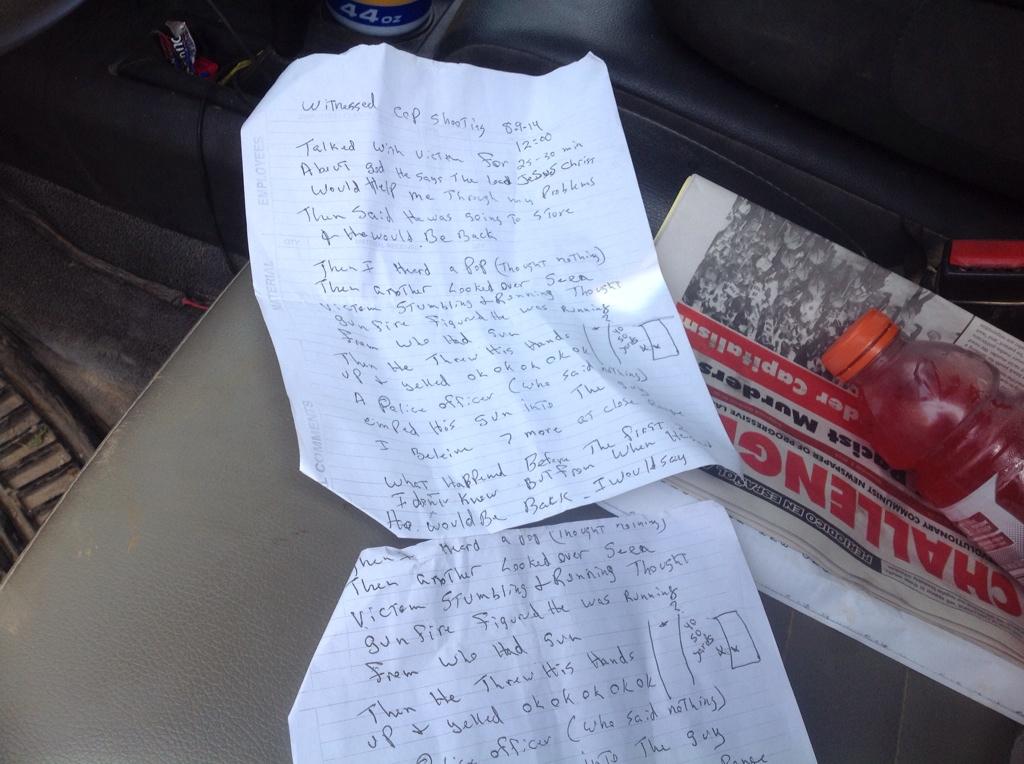 44 oz
Witnessed Cop Shooting 8-9-14
12:00
Talked with Victom For 25-30 min
About god He says The Lord Jesus Chriss
would Help me Through my Problems
Then Said He was going To Store
& He would Be Back
Then I Heard a Pop (Thought nothing)
Then another Looked over Seen
Victom Stumbling & Running Thought
gun fire Figured He was Running
From who Had gun
Then He Threw His Hands
up & yelled ok ok ok ok ok
A Police officer (who said nothing)
empied His gun into The guy
I Beleive 7 more at close Range
What Happend Before The First
I don't Know But From When He
He would Be Back - I would say
? 40 50 yards x x
EMPLOYEES
QTY
MATERIAL
COMMENTS
Then I Heard a Pop (Thought nothing)
Then another Looked over Seen
Victom Stumbling & Running Thought
gun fire Figured He was Running
From who Had gun
Then He Threw His Hands
up & yelled ok ok ok ok ok
Police officer (who said nothing)
into The guy
Range
? 40 50 yards x x
CHALLENG
REVOLUTIONARY COMMUNIST NEWSPAPER OF PROGRESSIVE LA
PERIODICO EN ESPAÑOL
acist Murders
der Capitalism